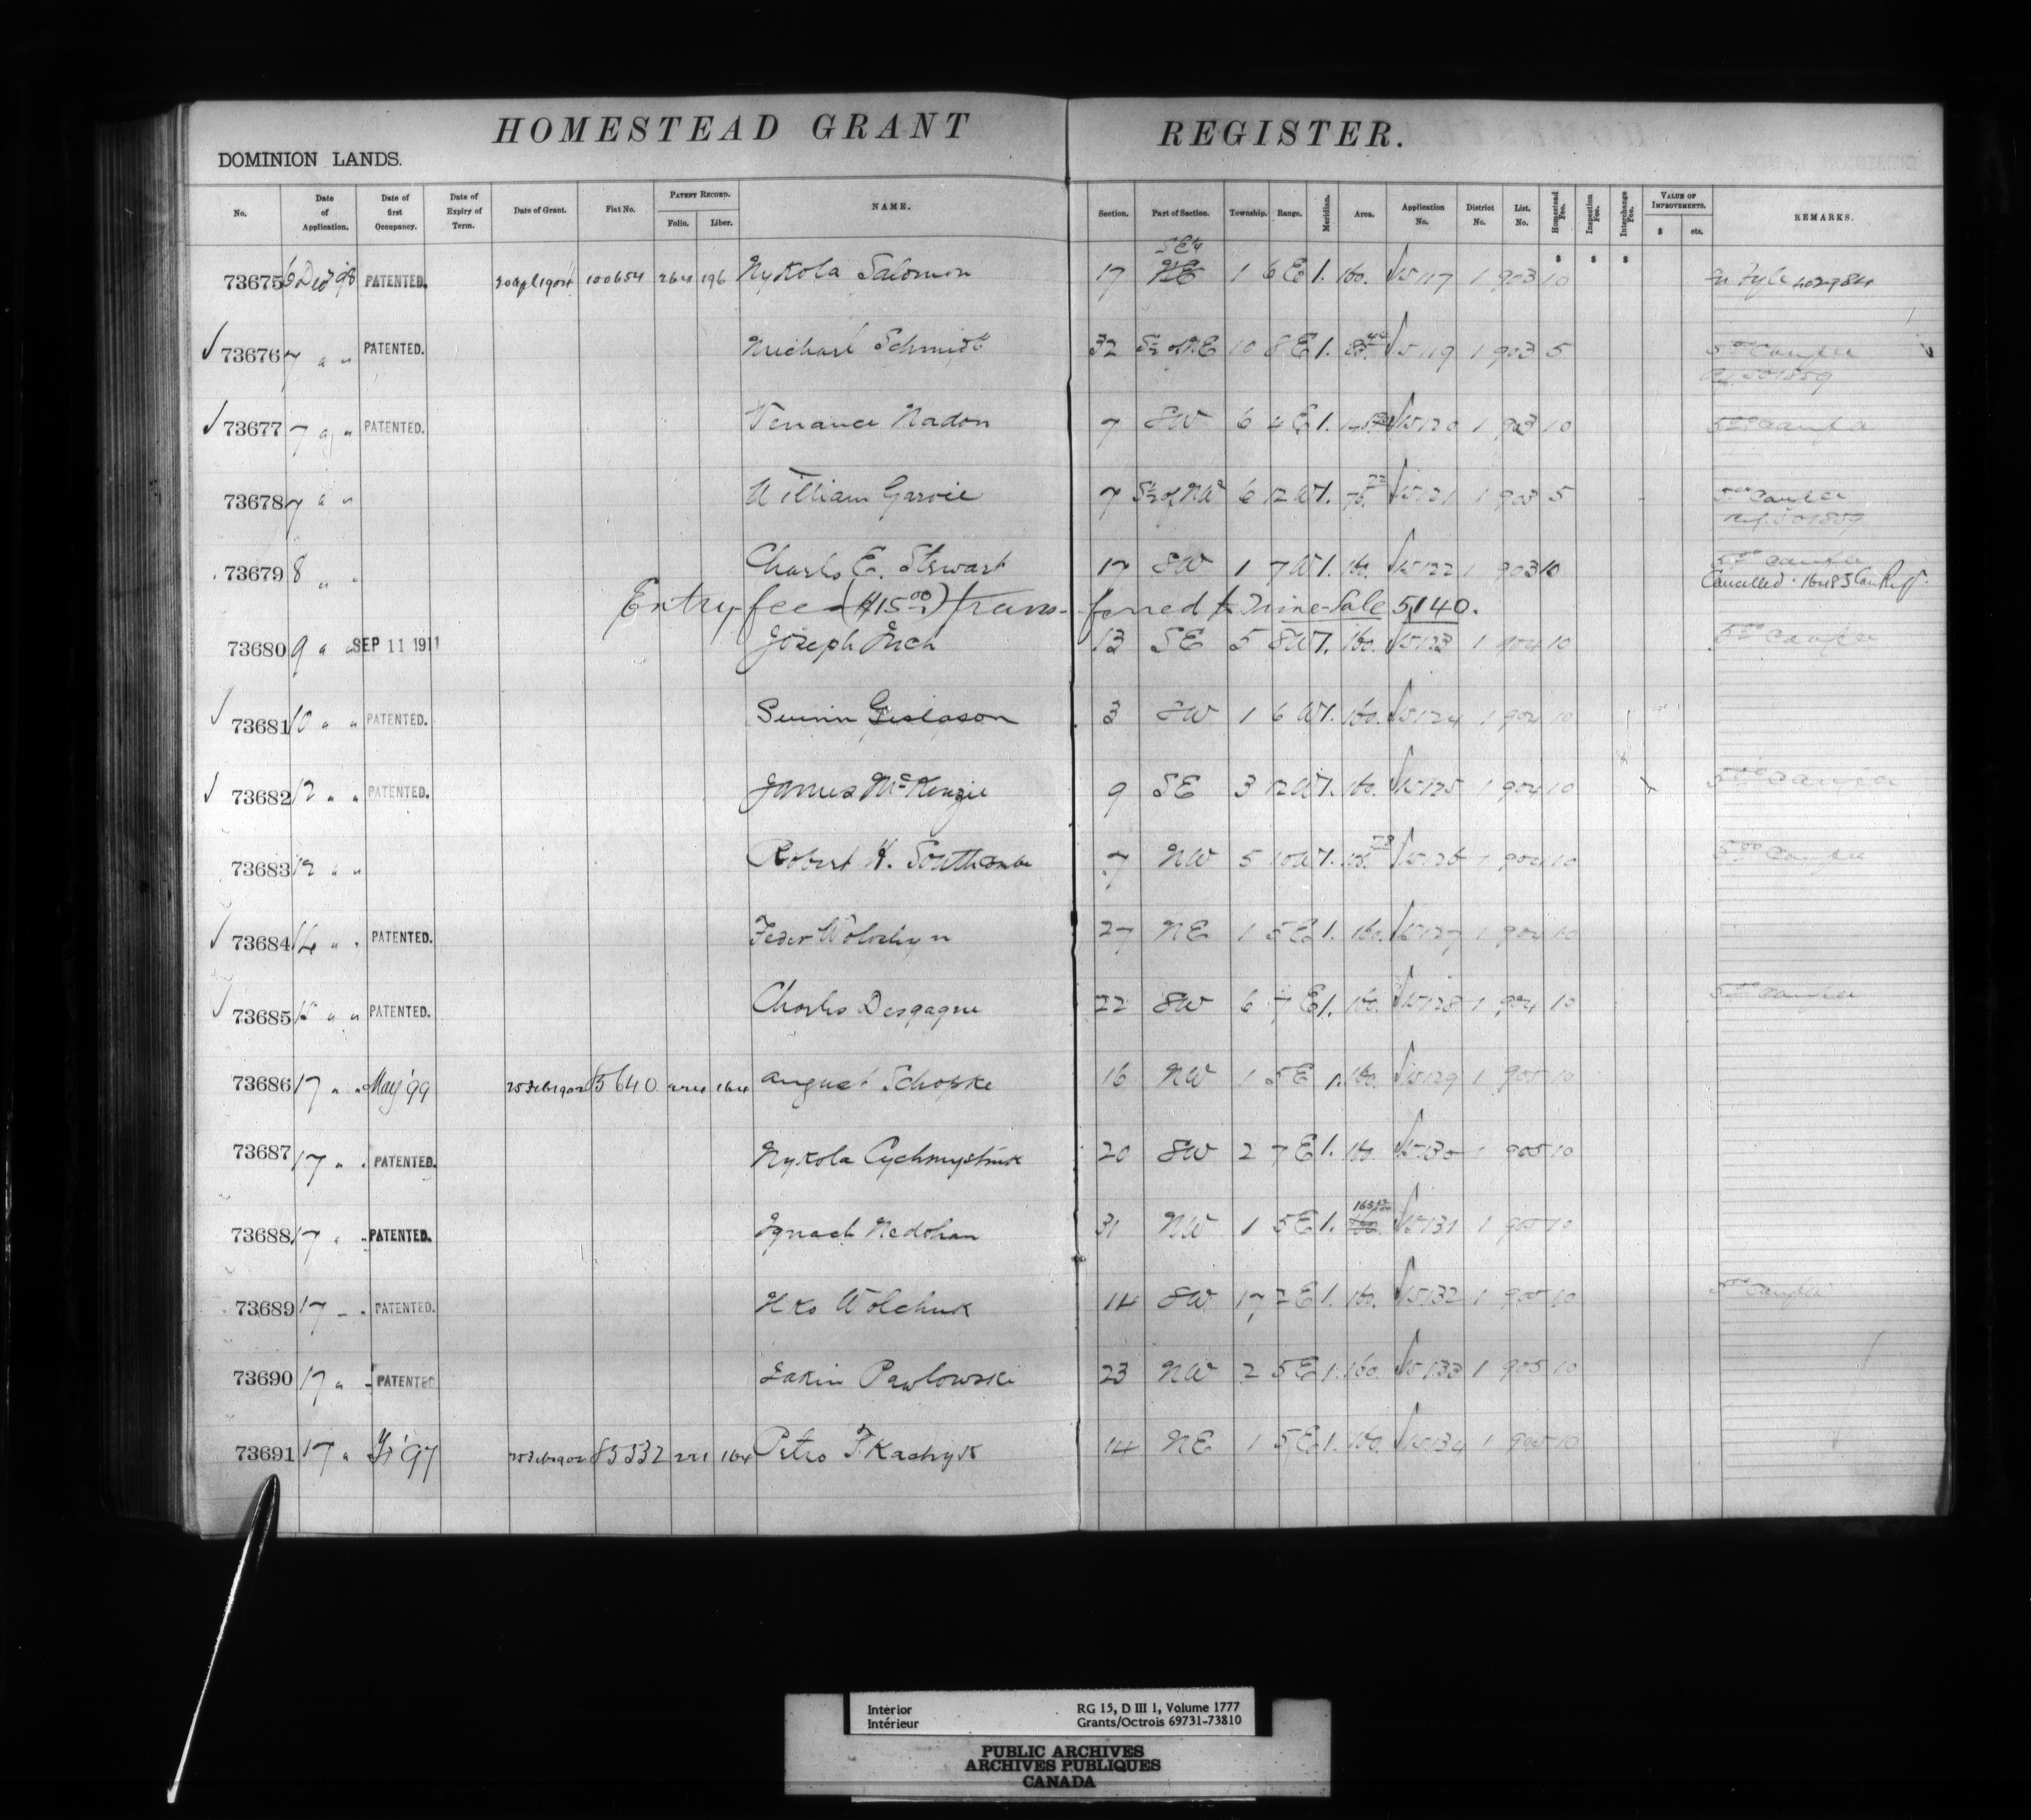 HOMESTEAD GRANT REGISTER.
DOMINION LANDS.
No. Date of Application. Date of first Occupancy. Date of Expiry of Term. Date of Grant. Fiat No. PATENT RECORD. Folio. Liber. NAME. Section. Part of Section. Township. Range. Meridian. Area. Application No. District No. List. No. Homestead Fee. Inspection Fee. Interchange Fee. VALUE OF IMPROVEMENTS. $ cts. REMARKS.
$ $ $
SE4
73675 6 Dec '98 PATENTED. 20 Apl 1904 100654 264 196 Nykola Salomon 17 NE 1 6 E 1. 160. 15117 1 903 10 402984
73676 7 " " PATENTED. Michael Schmidt 32 S½ of NE 10 8 E 1. 15119 1 903 5
73677 7 " " PATENTED. Venance Nadon 7 SW 6 4 E 1. 15120 1 903 10
73678 7 " " William Garvie 7 S½ of NW 6 12 W 1. 15121 1 903 5
73679 8 " " Charles E. Stewart 17 SW 1 7 W 1. 160. 15122 1 903 10
Cancelled
Entry fee ($15.00) transferred to Mine-Sale 5140.
73680 9 " " SEP 11 1911 Joseph Inch 13 SE 5 8 W 1. 160. 15123 1 904 10
73681 10 " " PATENTED. Gislason 3 SW 1 6 W 1. 160. 15124 1 904 10
73682 12 " " PATENTED. James McKenzie 9 SE 3 12 W 1. 160. 15125 1 904 10
73683 12 " " Robert H. Southcombe 7 NW 5 10 W 1. 15126 1 904 10
73684 14 " " PATENTED. Feder Woloshyn 27 NE 1 5 E 1. 160. 15127 1 904 10
73685 15 " " PATENTED. Charles Desgagne 22 SW 6 7 E 1. 160. 15128 1 904 10
73686 17 " " May '99 25 Feb 1902 85640 224 164 August Schopke 16 NW 1 5 E 1. 160. 15129 1 905 10
73687 17 " " PATENTED. Nykola Cychmystruk 20 SW 2 7 E 1. 160. 15130 1 905 10
73688 17 " " PATENTED. Ignach Nedohan 31 NW 1 5 E 1. 160. 15131 1 905 10
73689 17 " " PATENTED. Ilko Wolchuk 14 SW 17 2 E 1. 160. 15132 1 905 10
73690 17 " " PATENTED Pawlowski 23 NW 2 5 E 1. 160. 15133 1 905 10
73691 17 " '97 25 Feb 1902 85332 221 164 Petro Tkachyk 14 NE 1 5 E 1. 160. 15134 1 905 10
Interior
Intérieur
RG 15, D III 1, Volume 1777
Grants/Octrois 69731-73810
PUBLIC ARCHIVES
ARCHIVES PUBLIQUES
CANADA